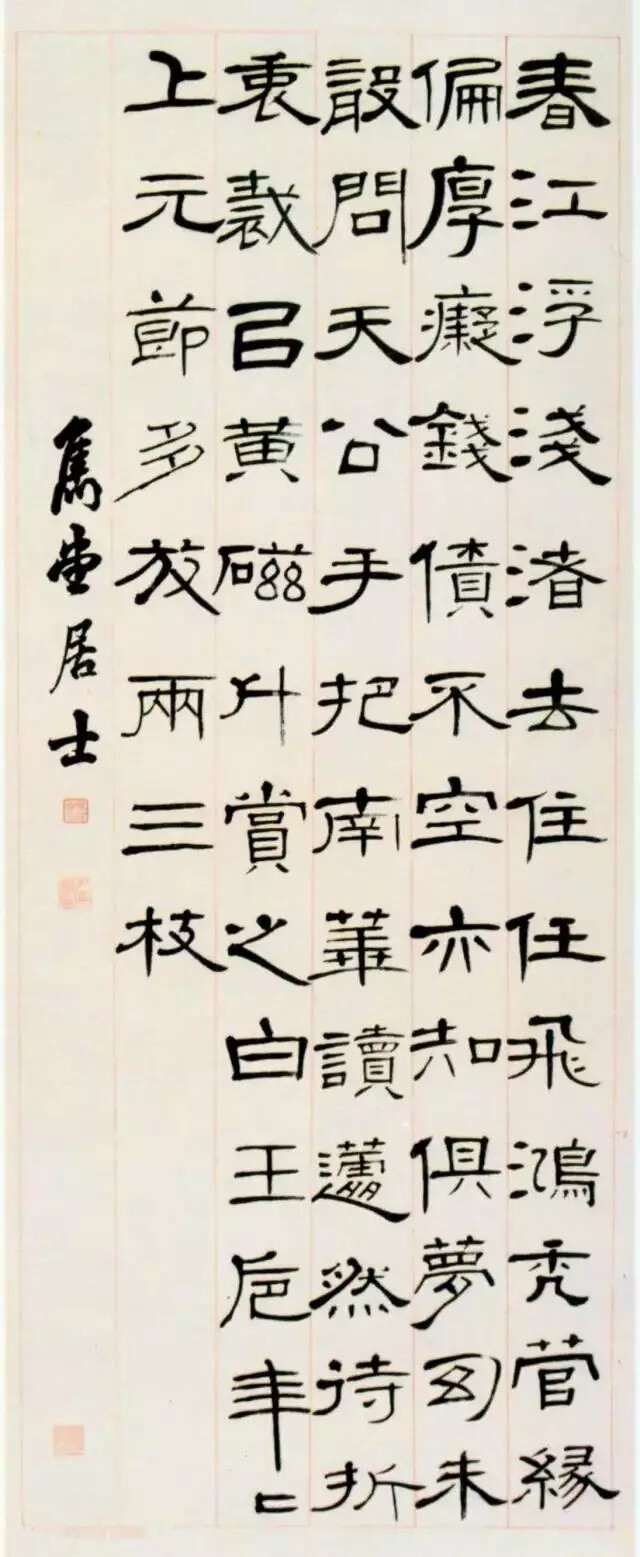 春江浮淺渚去住任飛鴻禿菅緣
偏厚癡錢債不空亦知俱夢幻未
敢問天公手把南華讀然待折
衷裁㠯黃磁斗賞之白玉卮年〻
上元節多放兩三枝
堂居士